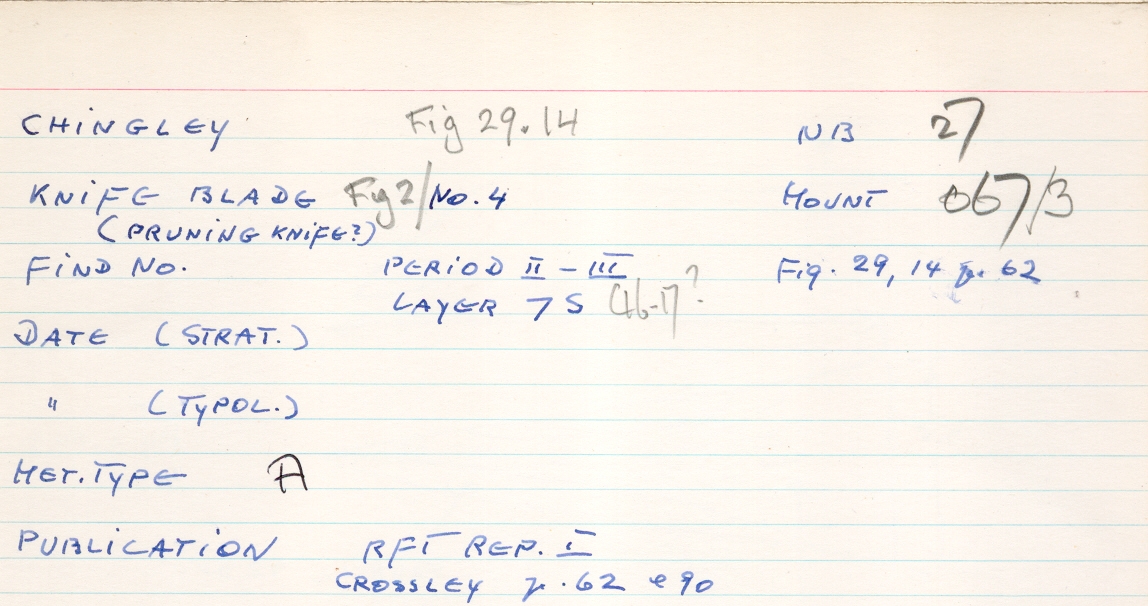 CHINGLEY Fig 29.14 NB 27
KNIFE BLADE Fig 2/No. 4 MOUNT 067/3
(PRUNING KNIFE?)
FIND No. PERIOD II - III Fig. 29, 14 p. 62
LAYER 7 S C16-17?
DATE (STRAT.)
" (TYPOL.)
MET. TYPE A
PUBLICATION RFT REP. I
CROSSLEY p. 62 & 90